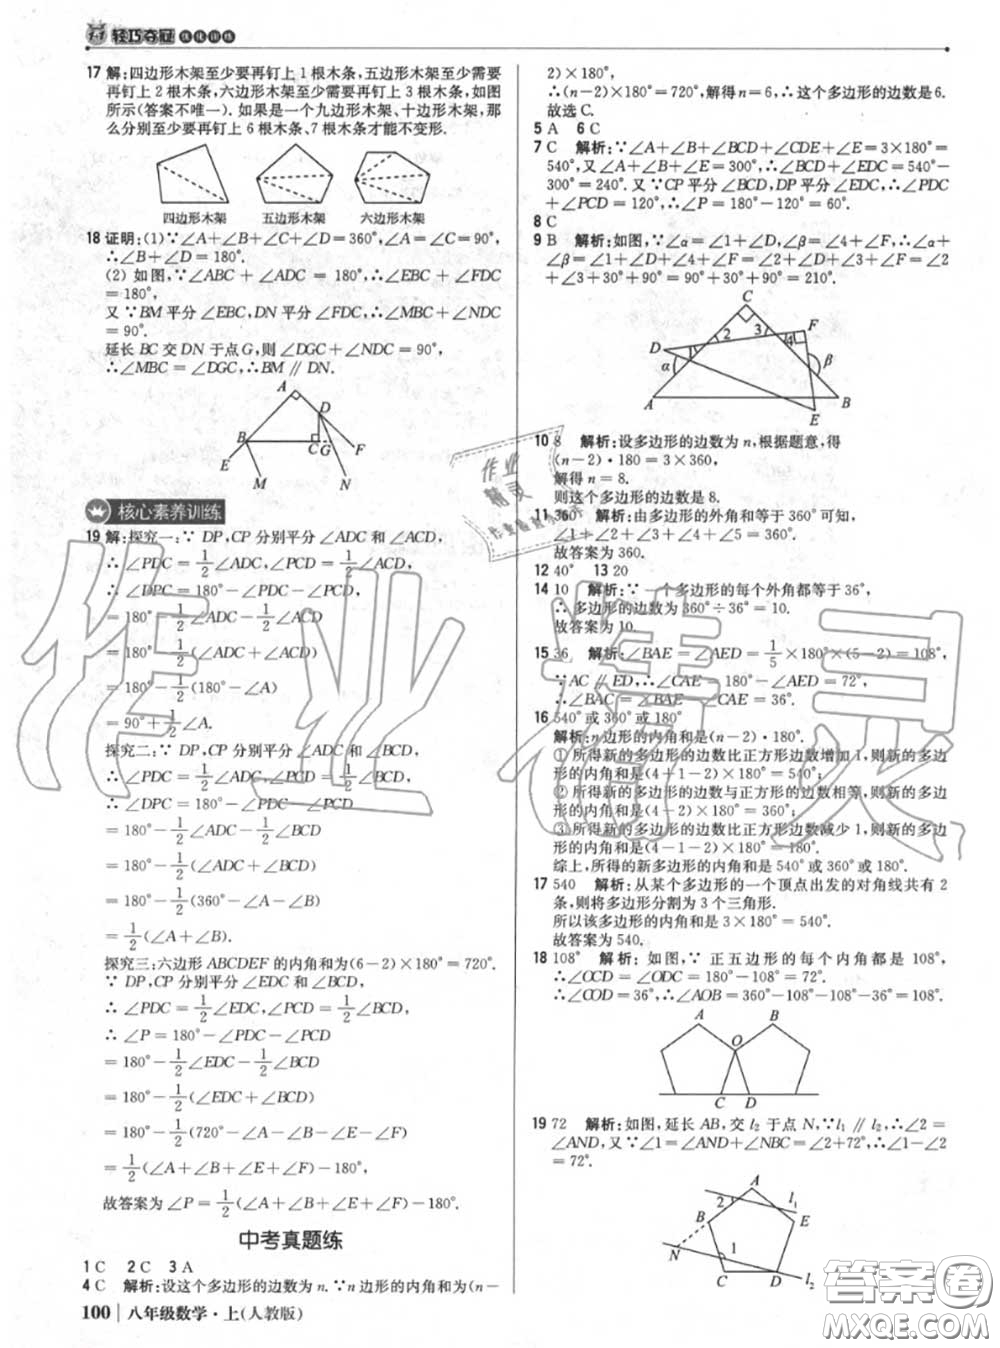 轻巧夺冠 优化训练
17 解:四边形木架至少要再钉上1根木条,五边形木架至少需要
再钉上2根木条,六边形木架至少需要再钉上3根木条,如图
所示(答案不唯一).如果是一个九边形木架、十边形木架,那
么分别至少要再钉上6根木条、7根木条才能不变形.
四边形木架 五边形木架 六边形木架
18 证明:(1)∵∠A+∠B+∠C+∠D=360°,∠A=∠C=90°,
∴∠B+∠D=180°.
(2) 如图,∵∠ABC+∠ADC=180°,∴∠EBC+∠FDC
=180°,
又∵BM平分∠EBC,DN平分∠FDC,∴∠MBC+∠NDC
=90°.
延长BC交DN于点G,则∠DGC+∠NDC=90°,
∴∠MBC=∠DGC,∴BM∥DN.
A
D
B
C
G
E
F
M
N
核心素养训练
19 解:探究一:∵ DP,CP分别平分∠ADC和∠ACD,
∴∠PDC=1/2∠ADC,∠PCD=1/2∠ACD,
∴∠DPC=180°-∠PDC-∠PCD
=180°-1/2∠ADC-1/2∠ACD
=180°-1/2(∠ADC+∠ACD)
=180°-1/2(180°-∠A)
=90°+1/2∠A.
探究二:∵ DP,CP分别平分∠ADC和∠BCD,
∴∠PDC=1/2∠ADC,∠PCD=1/2∠BCD,
∴∠DPC=180°-∠PDC-∠PCD
=180°-1/2∠ADC-1/2∠BCD
=180°-1/2(∠ADC+∠BCD)
=180°-1/2(360°-∠A-∠B)
=1/2(∠A+∠B).
探究三:六边形ABCDEF的内角和为(6-2)×180°=720°.
∵ DP,CP分别平分∠EDC和∠BCD,
∴∠PDC=1/2∠EDC,∠PCD=1/2∠BCD,
∴∠P=180°-∠PDC-∠PCD
=180°-1/2∠EDC-1/2∠BCD
=180°-1/2(∠EDC+∠BCD)
=180°-1/2(720°-∠A-∠B-∠E-∠F)
=1/2(∠A+∠B+∠E+∠F)-180°,
故答案为∠P=1/2(∠A+∠B+∠E+∠F)-180°.
中考真题练
1 C 2 C 3 A
4 C 解析:设这个多边形的边数为n.∵n边形的内角和为(n-
100 八年级数学·上(人教版)
2)×180°,
∴(n-2)×180°=720°,解得n=6,∴这个多边形的边数是6.
故选C.
5 A 6 C
7 C 解析:∵∠A+∠B+∠BCD+∠CDE+∠E=3×180°=
540°,又∠A+∠B+∠E=300°,∴∠BCD+∠EDC=540°-
300°=240°.又∵CP平分∠BCD,DP平分∠EDC,∴∠PDC
+∠PCD=120°,∴∠P=180°-120°=60°.
8 C
9 B 解析:如图,∵∠α=∠1+∠D,∠β=∠4+∠F,∴∠α+
∠β=∠1+∠D+∠4+∠F=∠2+∠D+∠3+∠F=∠2
+∠3+30°+90°=90°+30°+90°=210°.
C
1 2 3 4 F
D
α
β
A
B
E
10 8 解析:设多边形的边数为n,根据题意,得
(n-2)·180=3×360,
解得n=8.
则这个多边形的边数是8.
11 360° 解析:由多边形的外角和等于360°可知,
∠1+∠2+∠3+∠4+∠5=360°,
故答案为360.
12 40° 13 20
14 10 解析:∵一个多边形的每个外角都等于36°,
∴多边形的边数为360°÷36°=10.
故答案为10.
15 36 解析:∵∠BAE=∠AED=1/5×180°×(5-2)=108°,
∵AC∥ED,∴∠CAE=180°-∠AED=72°,
∴∠BAC=∠BAE-∠CAE=36°.
16 540°或360°或180°
解析:n边形的内角和是(n-2)·180°.
① 所得新的多边形的边数比正方形边数增加1,则新的多边
形的内角和是(4+1-2)×180°=540°;
② 所得新的多边形的边数与正方形的边数相等,则新的多边
形的内角和是(4-2)×180°=360°;
③ 所得新的多边形的边数比正方形边数减少1,则新的多边
形的内角和是(4-1-2)×180°=180°.
综上,所得的新多边形的内角和是540°或360°或180°.
17 540 解析:从某个多边形的一个顶点出发的对角线共有2
条,则将多边形分割为3个三角形.
所以该多边形的内角和是3×180°=540°.
故答案为540.
18 108° 解析:如图,∵正五边形的每个内角都是108°,
∴∠OCD=∠ODC=180°-108°=72°,
∴∠COD=36°,∴∠AOB=360°-108°-108°-36°=108°.
A
B
O
C D
19 72 解析:如图,延长AB,交l₂于点N,∵l₁∥l₂,∴∠2=
∠AND,又∵∠1=∠AND+∠NBC=∠2+72°,∴∠1-∠2
=72°.
A
2
l₁
B
E
N
1
C
D
l₂
作业
精灵
作业精灵
答案圈